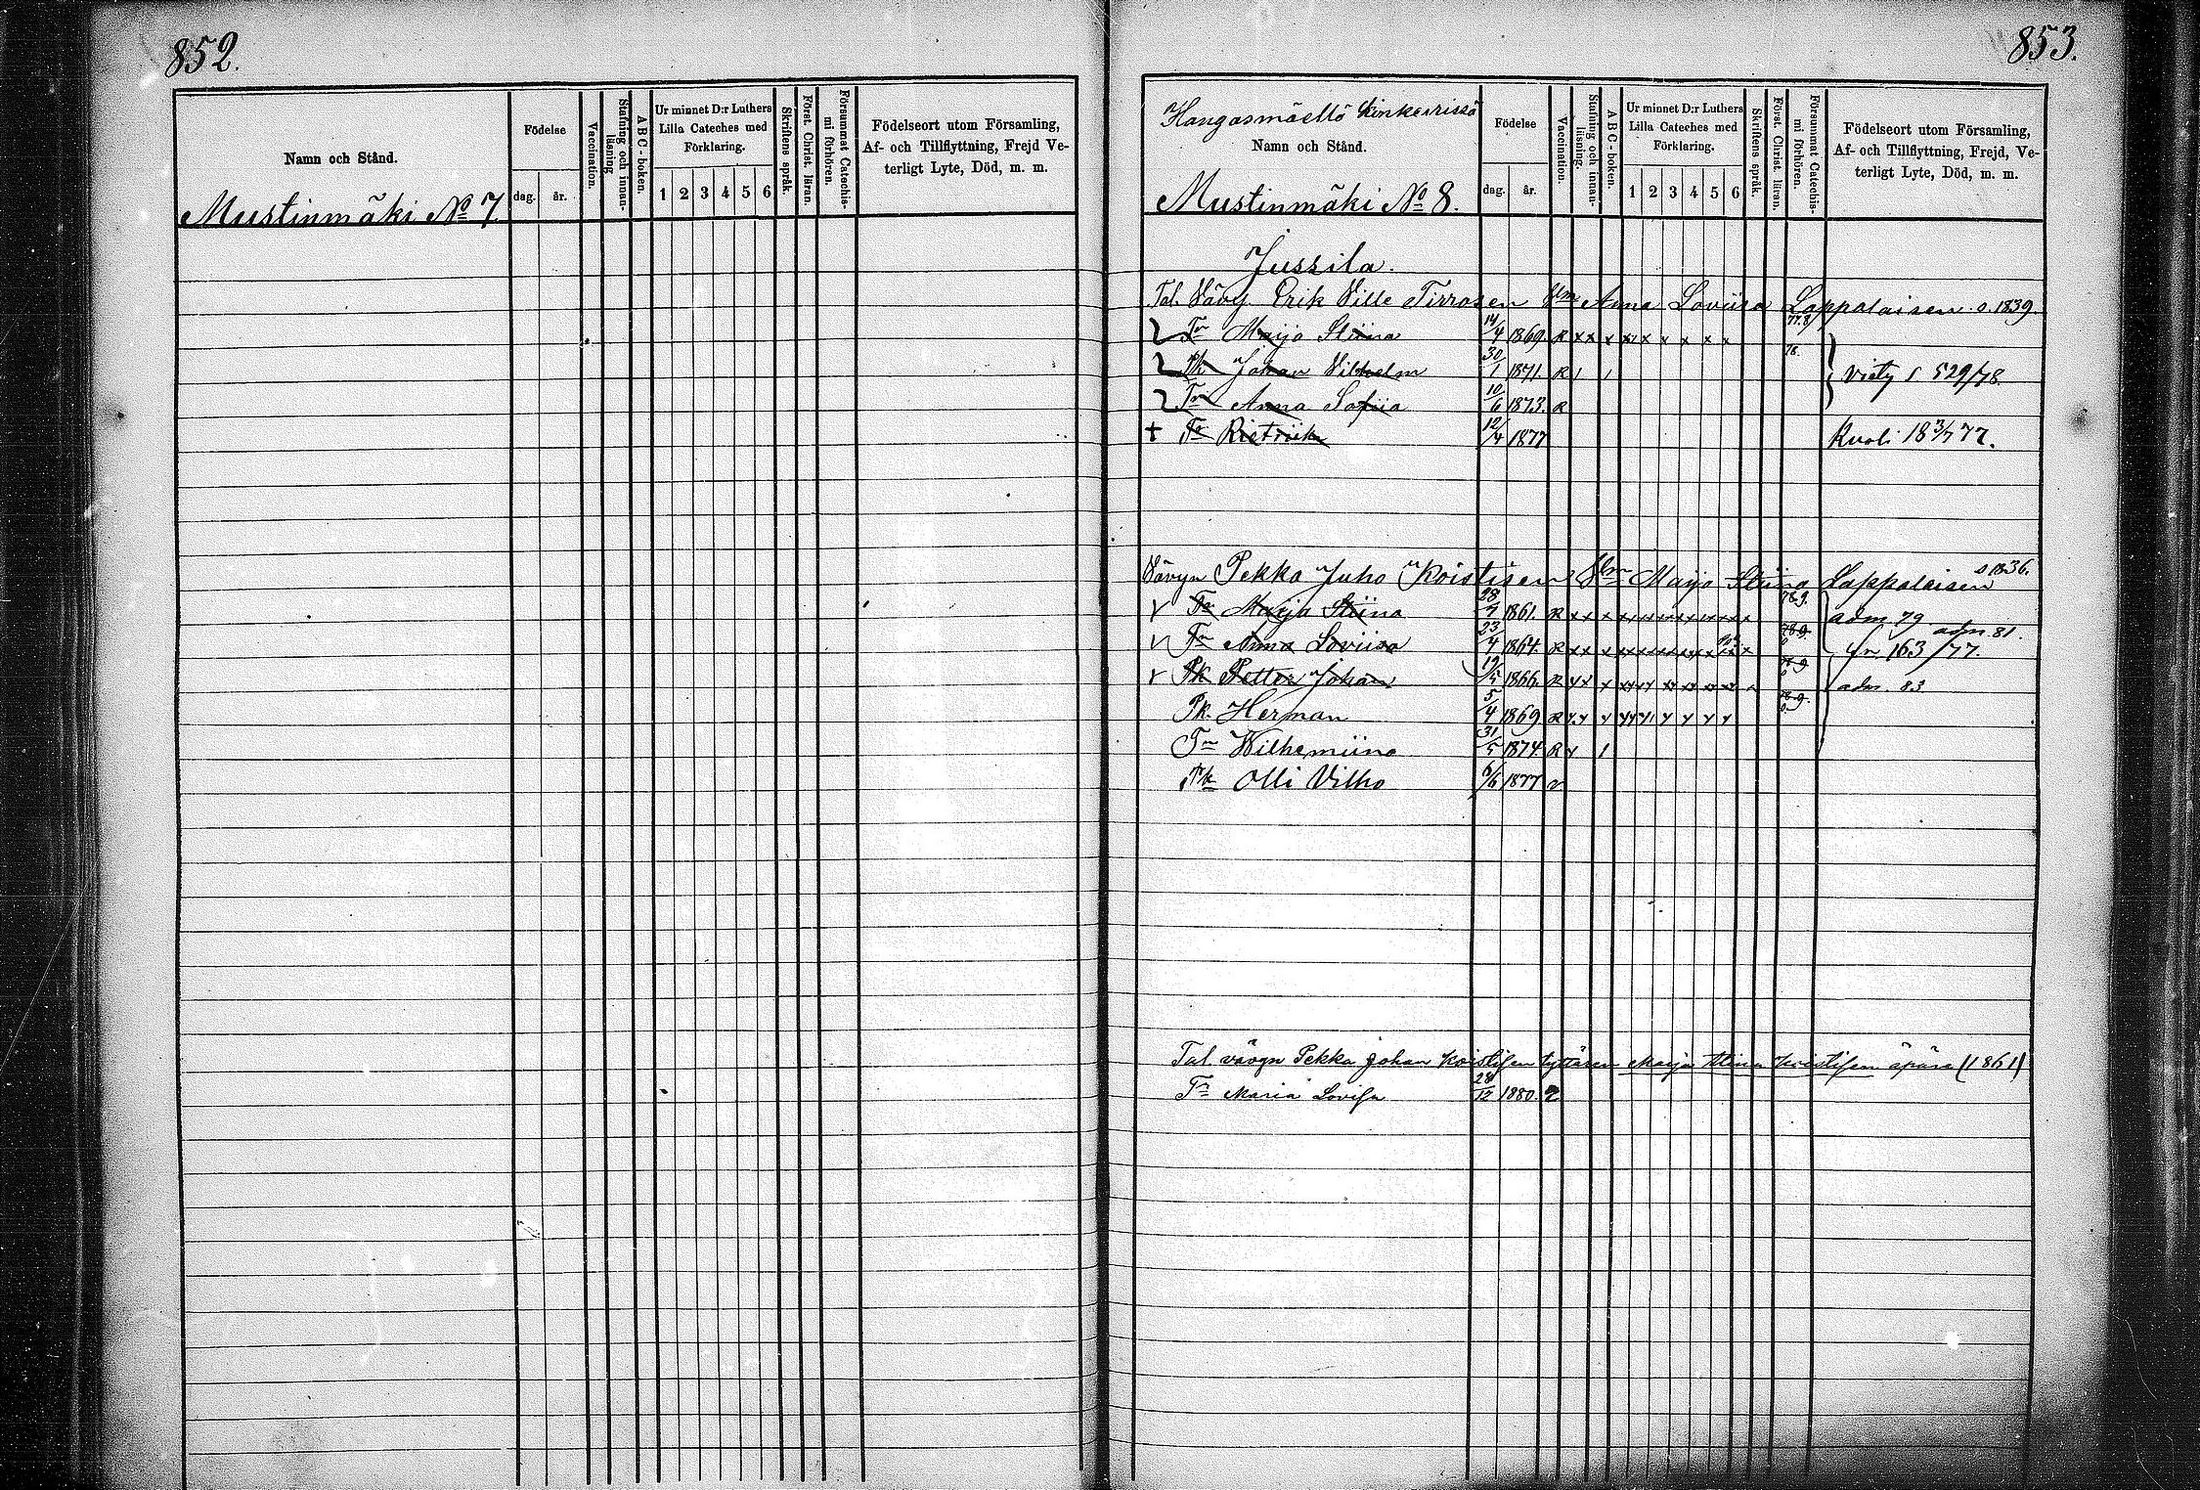 852.
Namn och Stånd.
Födelse
dag. år.
Vaccination.
Stafning och innan-läsning
A B C-boken.
Ur minnet D:r Luthers
Lilla Cateches med
Förklaring.
1 2 3 4 5 6
Skriftens språk.
Först. Christ. läran.
Försummat Catechis-mi förhören.
Födelseort utom Församling,
Af- och Tillflyttning, Frejd Ve-
terligt Lyte, Död, m. m.
Mustinmäki No 7
853.
Hangasmäellä kinkerissä
Namn och Stånd.
Födelse
dag. år.
Vaccination.
Stafning och innan-läsning.
A B C-boken.
Ur minnet D:r Luthers
Lilla Cateches med
Förklaring.
1 2 3 4 5 6
Skriftens språk.
Först. Christ. läran.
Försummat Catechis-mi förhören.
Födelseort utom Församling,
Af- och Tillflyttning, Frejd, Ve-
terligt Lyte, Död, m. m.
Mustinmäki No 8.
Jussila.
Tal. Vävy Erik Ville Tirrosen Anna Loviisa Lappalaisen s. 1839.
Tr Maija Stiina 14/4 1869. R xx x xx x x x x x 77.8
Pk Johan Vilhelm 30/1 1871. R 1 1 78. viety s 529/78.
Tr Anna Sofiia 10/6 1873. R
+ Tr Rietriik 12/4 1877 Kuoli 18 3/7 77.
Vävyn Pekka Juho Koistisen Maija Stiina Lappalaisen s 1836.
Tr Marja Stiina 28/7 1861. R xx x adm 79
Tr Anna Loviisa 23/4 1864. R xx x adm. 81.
163/77.
Pk Petter Johan 19/5 1866. R adm. 83
Pk. Herman 5/4 1869 R
Tr Wilhemiina 31/5 1874. R 1
Pk Olli Vilho 6/6 1877 v
Tal. vävyn Pekka Johan Koistisen tyttären Marja Stina Koistisen äpärä (1861)
Tr Maria Lovisa 28/12 1880.